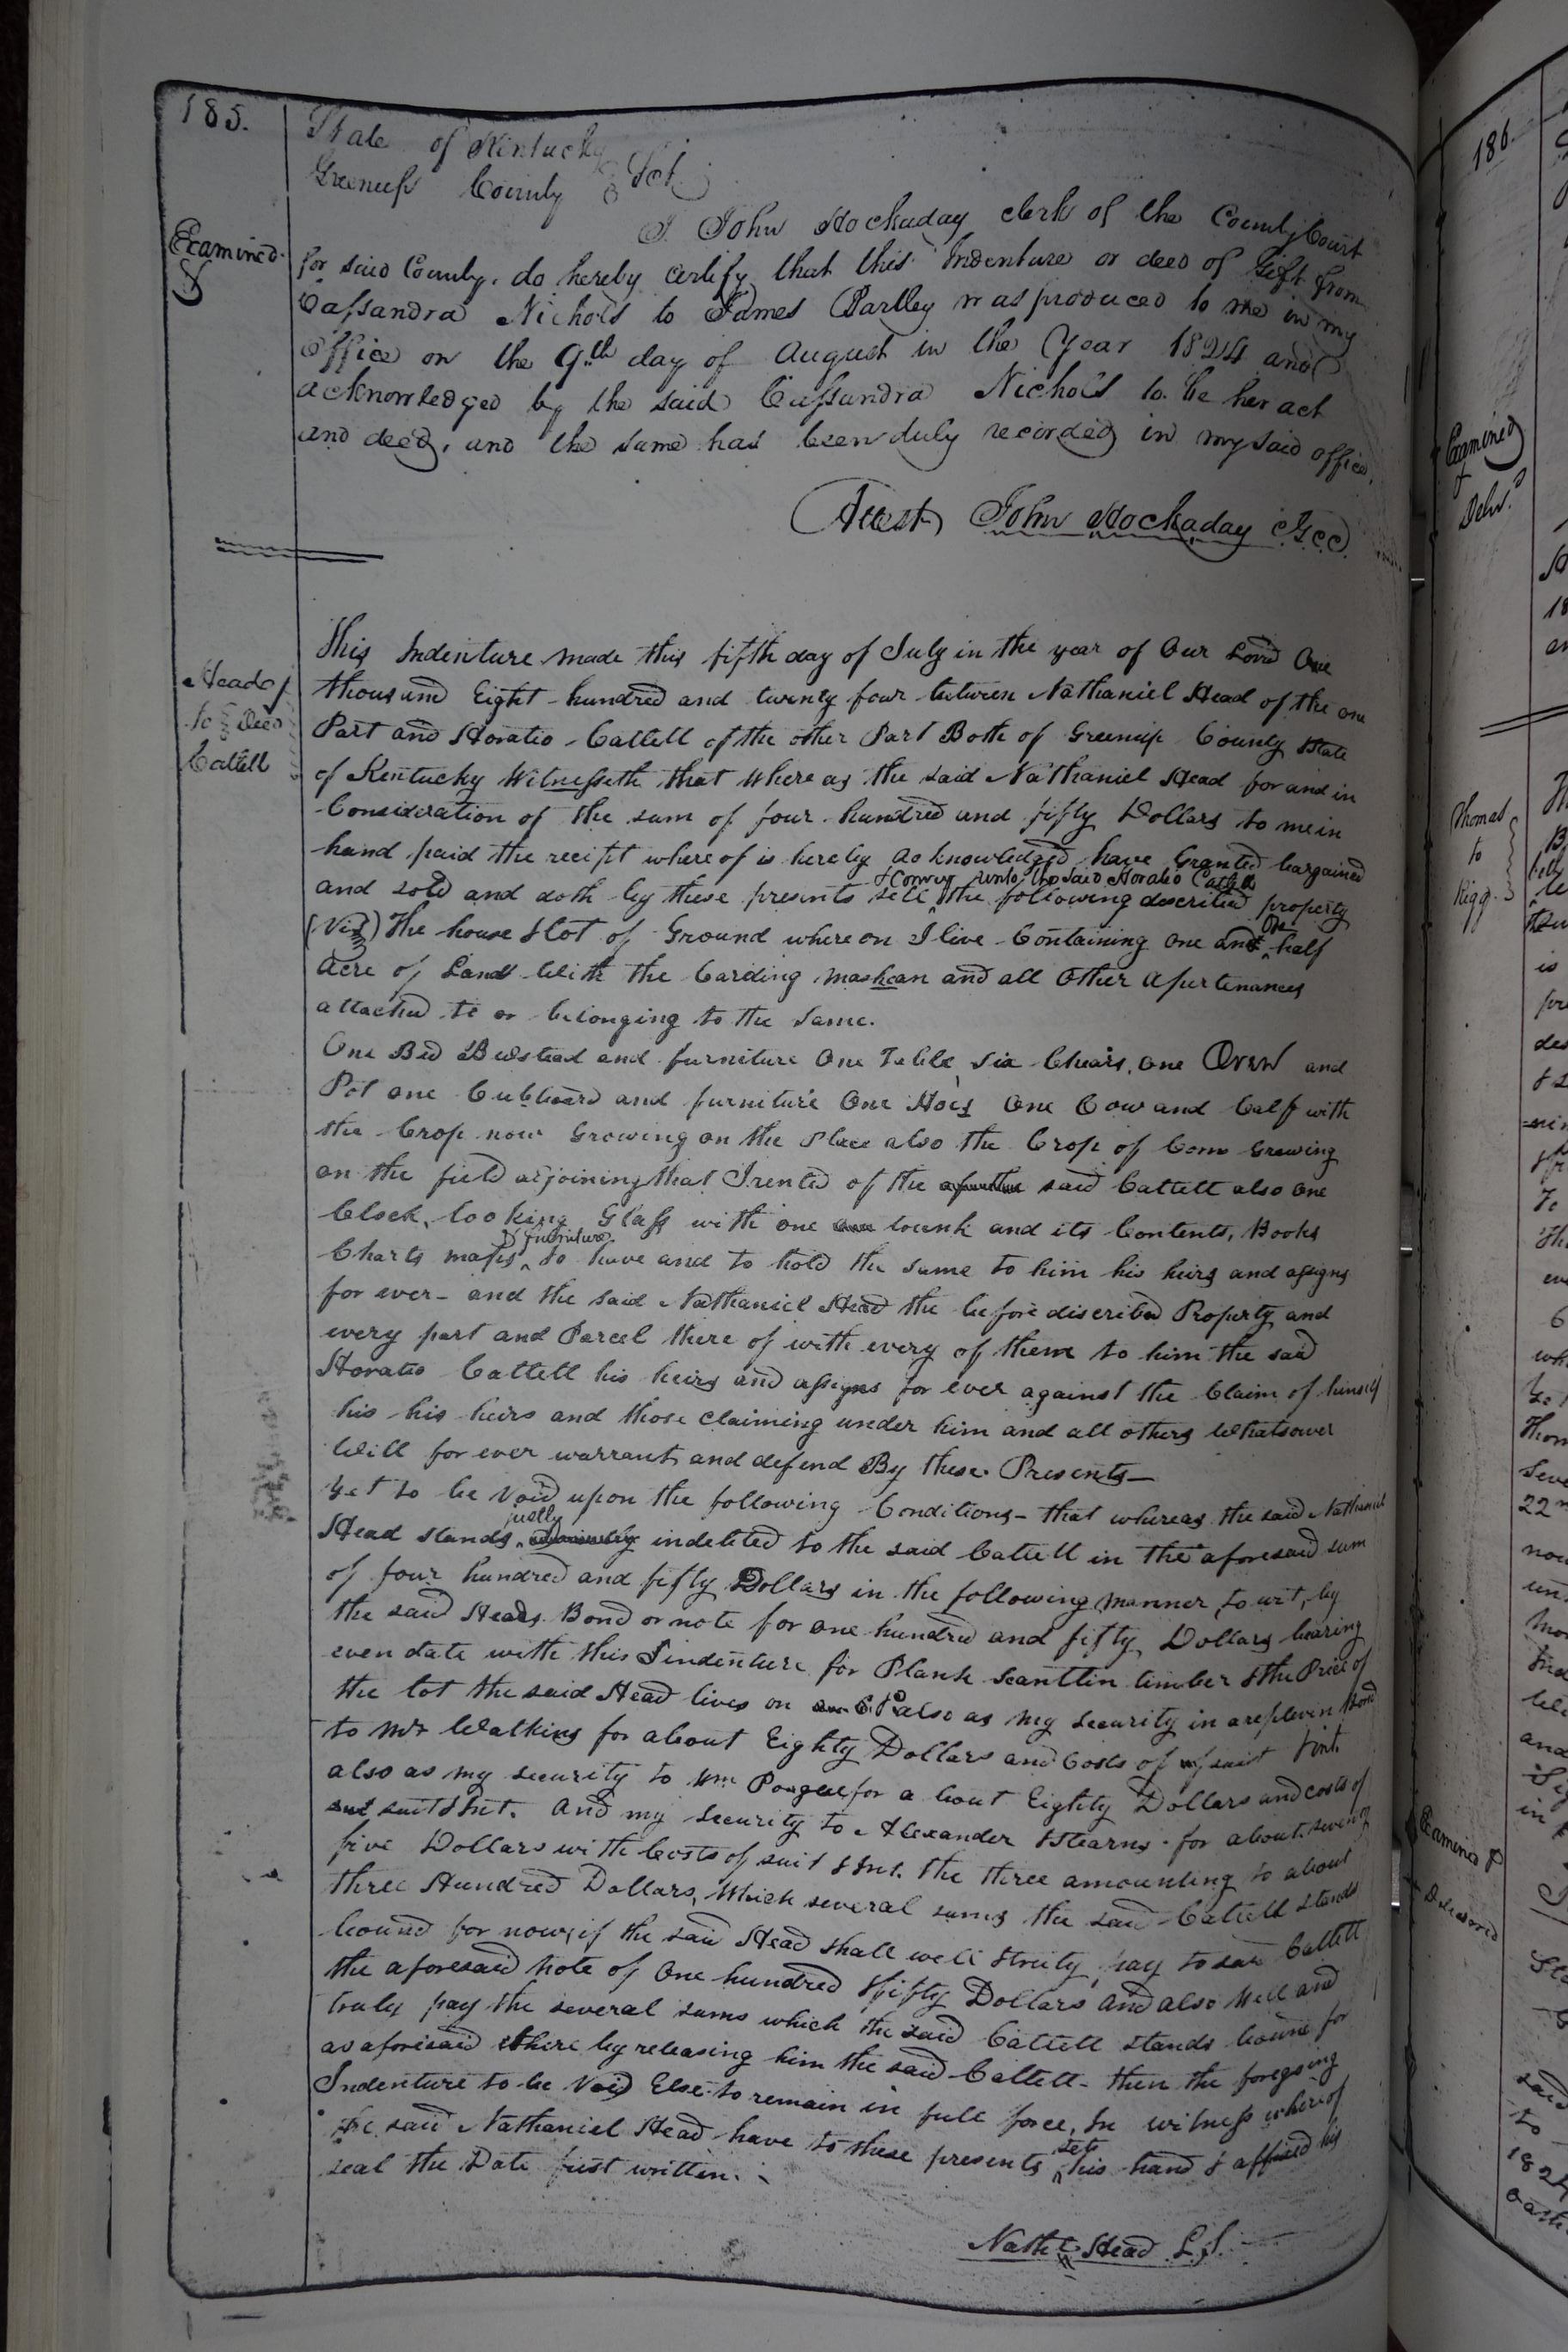 185.
State of Kentucky
Greenup County Sct.
I John Hockaday clerk of the County Court
Examined
for said County, do hereby certify that this Indenture or deed of Gift from
Cassandra Nichols to James Partley was produced to me in my
office on the 9th day of August in the Year 1824 and
acknowledged by the said Cassandra Nichols to be her act
and deed, and the same has been duly recorded in my said office.
Attest John Hockaday CGCC
Head
to Deed
Cattell
This Indenture made this fifth day of July in the year of Our Lord One
thousand Eight hundred and twenty four between Nathaniel Head of the one
Part and Horatio Cattell of the other Part Both of Greenup County State
of Kentucky Witnesseth that where as the said Nathaniel Head for and in
Consideration of the sum of four hundred and fifty Dollars to me in
hand paid the recipt where of is hereby acknowledged have Granted bargained
& Convey unto the said Horatio Cattell
and sold and doth by these presents sell the following described property
(Viz) The house & lot of Ground where on I live Containing one and One half
Acre of Land With the Carding mashean and all Other Apurtenances
attached to or belonging to the Same.
One Bed & Bedstead and furniture One Table, Six Chears, one Oven and
Pot one Cubboard and furniture One Hors One Cow and Calf with
the Crop now Growing on the Place also the Crop of Corn Growing
on the field adjoining that I rented of the said Cattell also One
Clock, looking Glass with one trunk and its Contents, Books
furniture
Charts maps, to have and to hold the same to him his heirs and assigns
for ever - and the said Nathaniel Head the before discribed Property and
every part and Parcel there of with every of them to him the said
Horatio Cattell his heirs and assigns for ever against the Claim of himself
his his heirs and those claiming under him and all others Whatsover
Will for ever warrant and defend By these Presents —
Yet to be Void upon the following Conditions - that whereas the said Nathaniel
justly
Head stands indebted to the said Cattell in the aforesaid sum
of four hundred and fifty Dollars in the following manner, to wit, by
the said Heads Bond or note for one hundred and fifty Dollars bearing
even date with this indenture for Plank Scantlin timber & the Price of
the lot the said Head lives on also as my security in a replevin Bond
to Mr Watkins for about Eighty Dollars and Costs of suit & int.
also as my security to Wm Pougue for a bout Eighty Dollars and costs of
suit & Int. And my security to Alexander & Stearns for about seventy
five Dollars with Costs of suit & Int. the three amounting to about
three Hundred Dollars, Which several sums the said Cattell stands
bound for now, if the said Head shall well & truly pay to said Cattell
the aforesaid note of One hundred & fifty Dollars and also Well and
truly pay the several sums which the said Cattell stands bound for
as aforesaid there by releasing him the said Cattell - then the foregoing
Indenture to be Void Else to remain in full force, In witness where of
the said Nathaniel Head have to these presents set his hand & affixed his
seal the Date first written.
Nathl Head L.S.
186.
Examined
Delvd
Thomas
to
Rigg
Examined
Delivered